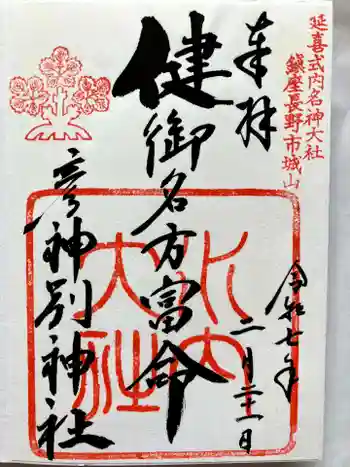 延喜式内名神大社
鎮座長野市城山
奉拝
健御名方富命
彦神別神社
水内大社
令和七年
二月二十一日